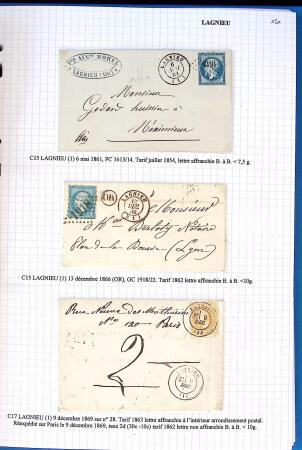 LAGNIEU
LAGNIEU
6
61
(1)
LAGNIEU (Ain)
Monsieur
Godard
à
Meximieux
C15 LAGNIEU (1) 6 mai 1861, PC 1613/14. Tarif juillet 1854, lettre affranchie B. à B. < 7,5 g.
OR
LAGNIEU
DEC
66
(1)
Monsieur
Notaire
Place de la Bourse (Lyon)
C15 LAGNIEU (1) 13 décembre 1866 (OR), GC 1918/22. Tarif 1862 lettre affranchie B. à B. <10g.
Rue Neuve des Mathurins
Paris
9
DEC
2
C17 LAGNIEU (1) 9 décembre 1869 sur n° 28. Tarif 1863 lettre affranchie à l'intérieur arrondissement postal.
Réexpédié sur Paris le 9 décembre 1869, taxe 2d (30c -10c) tarif 1862 lettre non affranchie B. à B. < 10g.